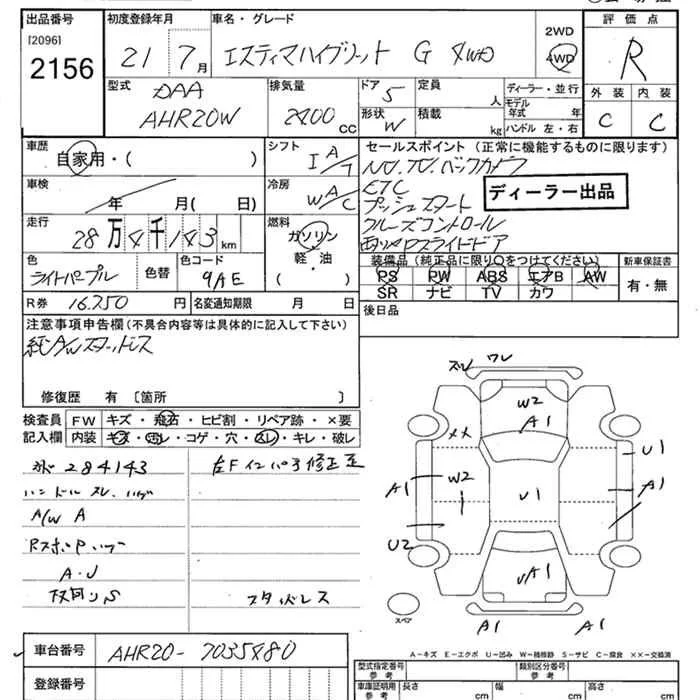 出品番号 初度登録年月 車名・グレード 評価点
[2096] 2156 21 7月 エスティマハイブリット G 4WD 2WD 4WD R
型式 DAA AHR20W 排気量 2400 cc ドア 5 定員 人 ディーラー・並行 外装 内装
形状 W 積載 kg モデル年式 年 ハンドル 左・右 C C
車歴 自家用・( ) シフト IA/T セールスポイント(正常に機能するものに限ります)
NV.TV.バックカメラ
車検 年 月( 日) 冷房 WA/C ETC ディーラー出品
プッシュスタート
走行 28万4千143km 燃料 ガソリン・軽・油 ( ) クルーズコントロール
両側Pスライドドア
色 ライトパープル 色替 色コード 9AE 装備品(純正品に限り○をつけてください) 新車保証書
PS PW ABS エアB AW 有・無
SR ナビ TV カワ
R券 16.750 円 名変通知期限 月 日 後日品
注意事項申告欄(不具合内容等は具体的に記入して下さい)
純A/Wスタッドレス
修復歴 有〔箇所 〕
検査員 FW キズ・飛石・ヒビ割・リペア跡・×要
記入欄 内装 キズ・汚レ・コゲ・穴・スレ・キレ・破レ
284143 左Fインパネ修正歪
ハンドルスレ、ハゲ
A/W A
A・J
スタッドレス
スレ ワレ
W2
A1
メメ
U1
A1
W2
U1
A1
U2
A1
A1 A1
スペア
A-キズ E-エクボ U-凹み W-補修跡 S-サビ C-腐食 ××-交換済
車台番号 AHR20-7035480
登録番号
型式指定番号 参考 類別区分番号 参考
車庫証明用 参考 長さ cm 幅 cm 高さ cm